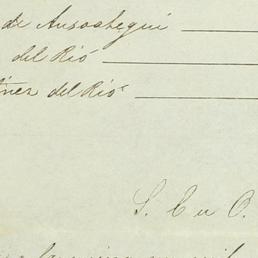 de Ansoategui
del Rió
tinez del Rio
S. E u O.